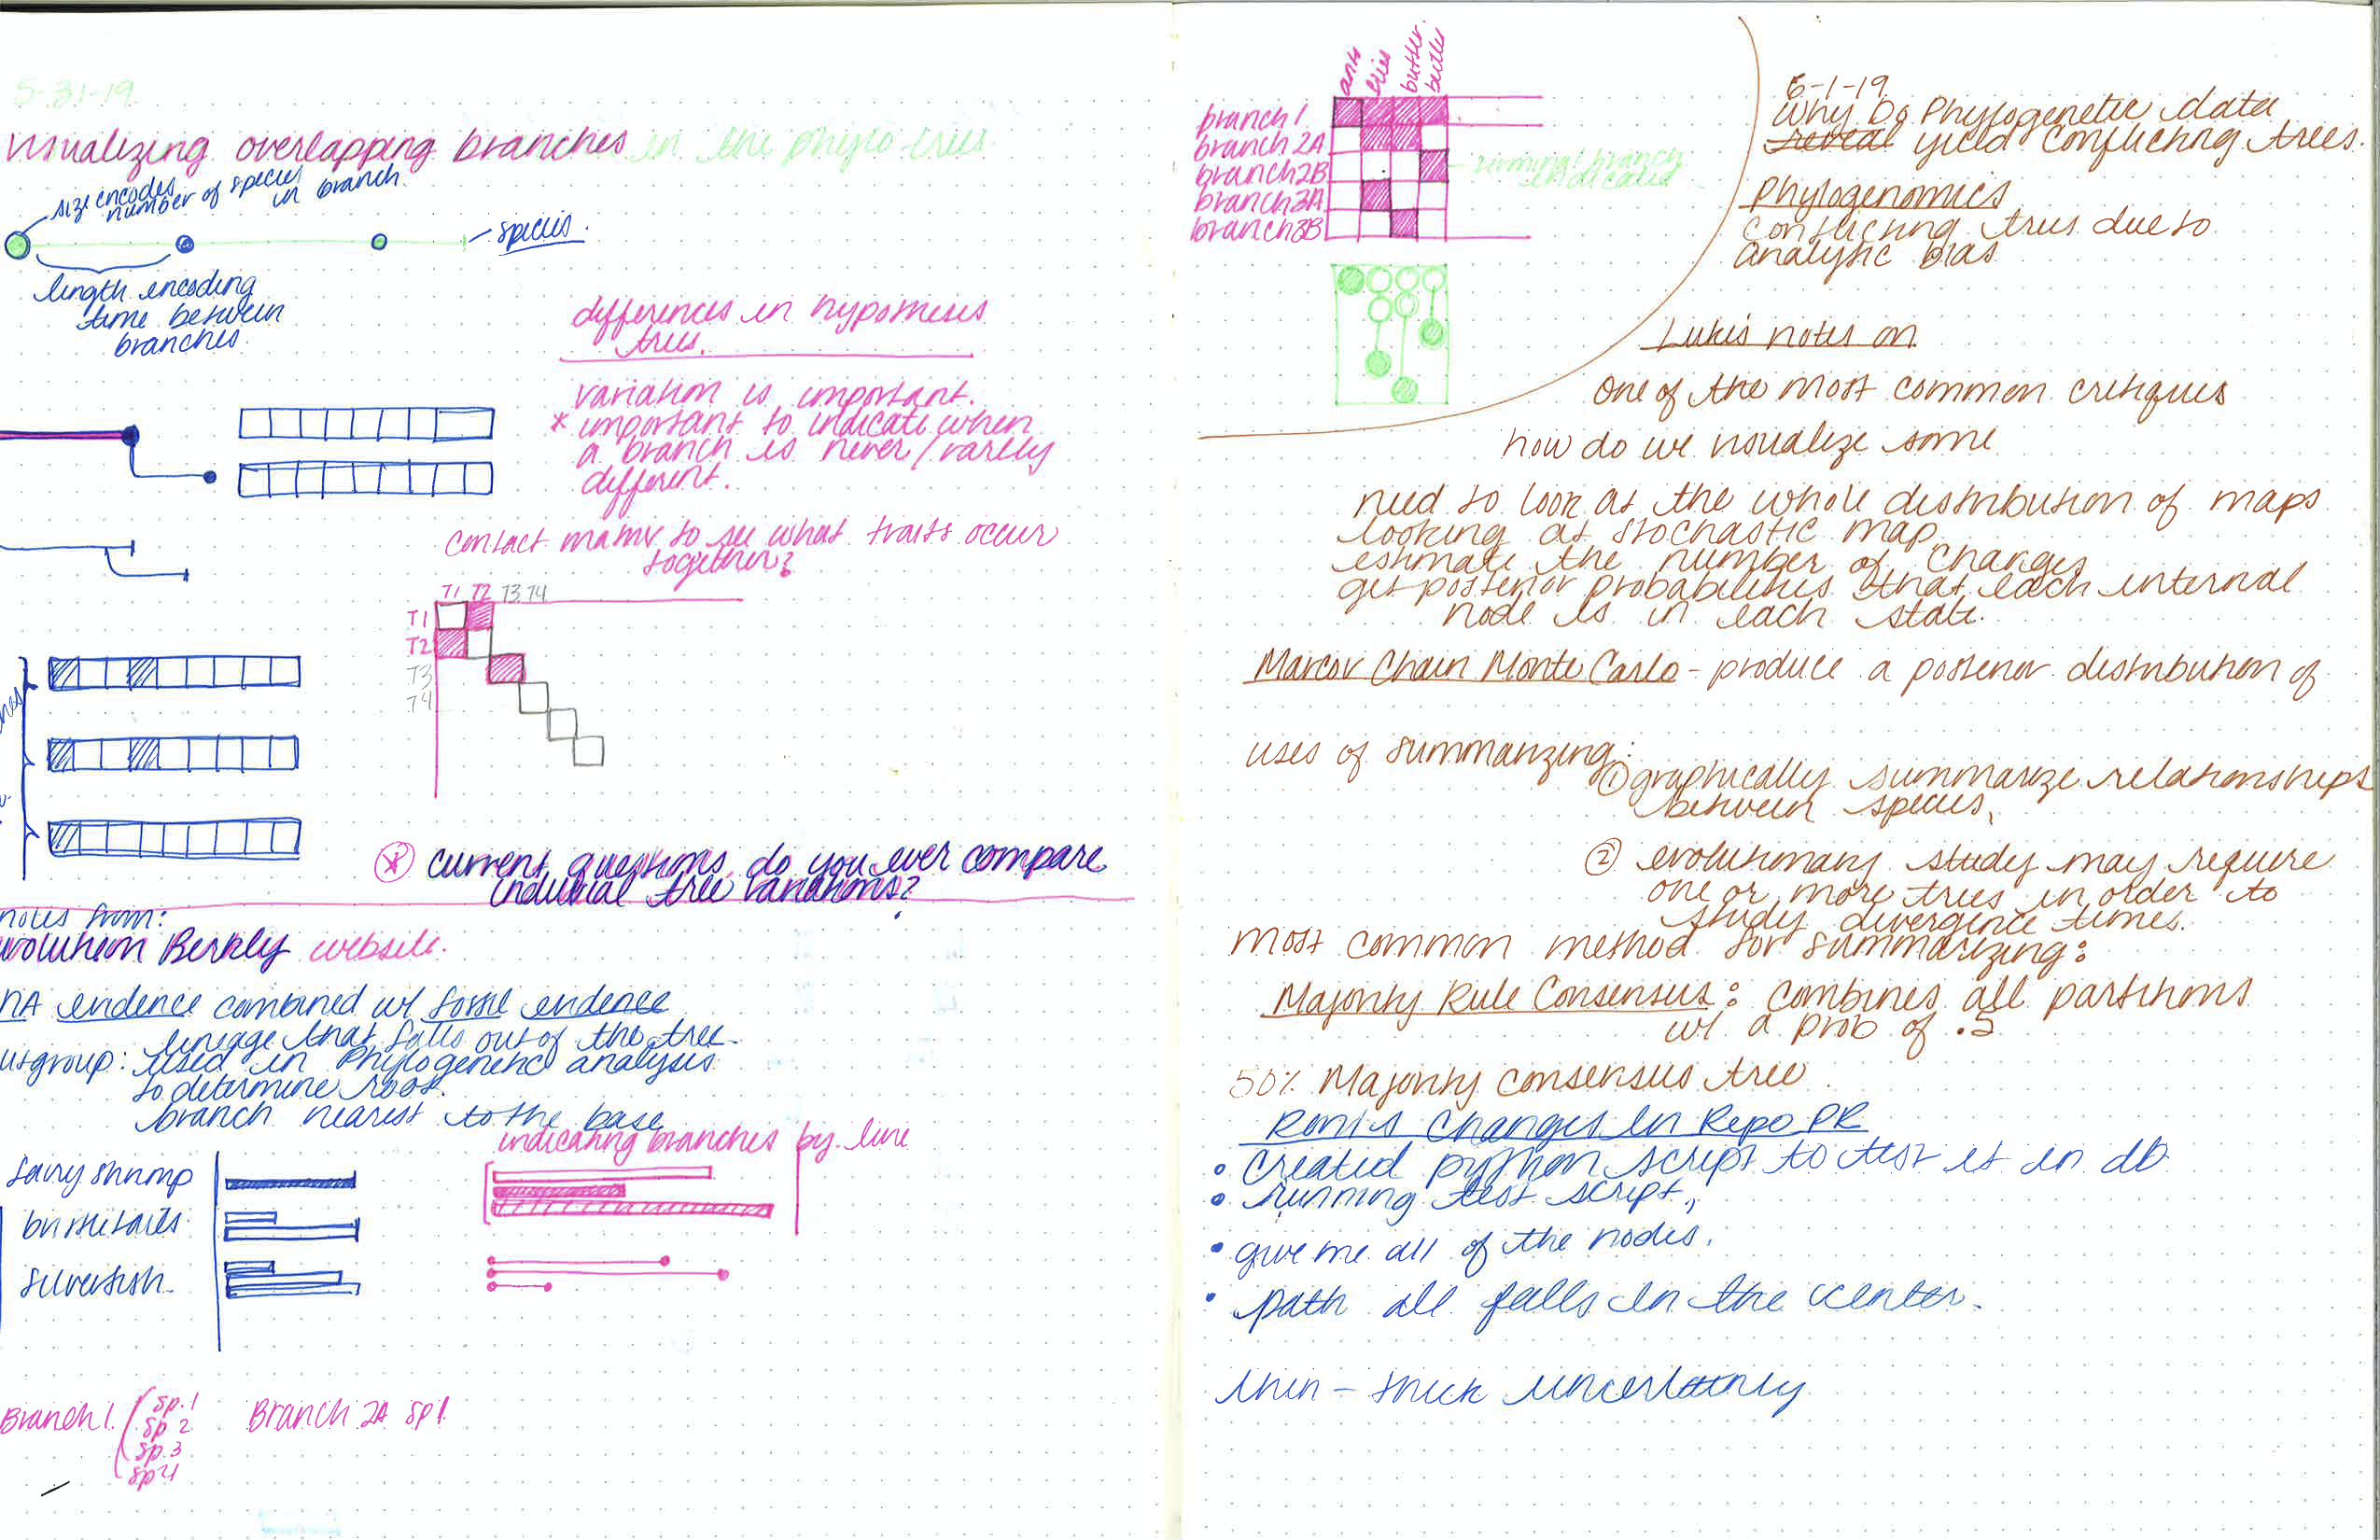 5-31-19
visualizing overlapping branches in the phylo trees
size encodes
number of species
in branch
species.
length encoding
time between
branches
differences in hypothesis
trees.
variation is important.
* important to indicate when
a branch is never/rarely
different.
contact matrix to see what traits occur
together?
T1 T2 T3 T4
T1
T2
T3
T4
* current questions, do you ever compare
indivisial tree variations?
notes from:
volution Berkly website.
NA evidence combined w/ fossil evidence
lineage that falls out of the tree
utgroup: used in Phylogenetic analysis
to determine root.
branch nearest to the base
indicating branches by line
fairy shrimp
bristletails
silverfish
Branch 1. sp. 1
sp 2
sp. 3
sp 4
Branch 2A sp 1.
ants
flies
butter
beetles
branch 1
branch 2A
branch 2B
branch 3A
branch 3B
terminal branch
indicated
6-1-19
Why Do Phylogenetic data
reveal yield conflicting trees.
Phylogenomics
conflicting trees due to
analytic bias
Luke's notes on
one of the most common critiques
how do we visualize some
need to look at the whole distribution of maps
looking at stochastic map
estimate the number of changes
get posterior probabilities that each internal
node is in each state.
Marcov Chain Monte Carlo - produce a posterior distribution of
uses of summarizing:
① graphically summarize relationships
between species,
② evolutionary study may require
one or more trees in order to
study divergence times.
most common method for summarizing:
Majority Rule Consensus: combines all partitions
w/ a prob of .5
50% Majority consensus tree
Roni's Changes In Repo PR
• created python script to test it in db
• running test script,
• give me all of the nodes.
• path all falls in the center.
thin - thick uncertainty